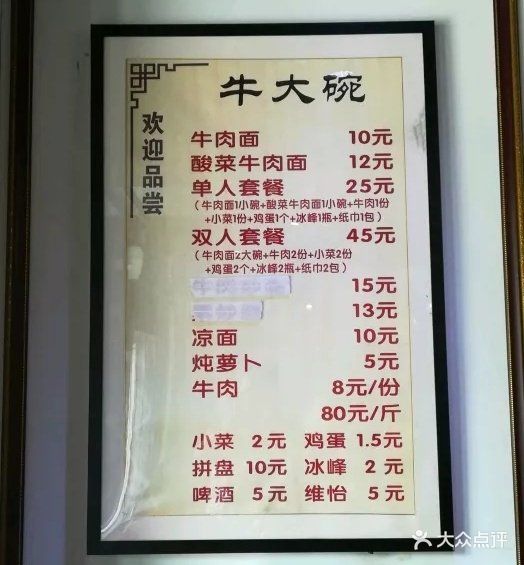 牛大碗
欢迎品尝
牛肉面 10元
酸菜牛肉面 12元
单人套餐 25元
(牛肉面1小碗+酸菜牛肉面1小碗+牛肉1份
+小菜1份+鸡蛋1个+冰峰1瓶+纸巾1包)
双人套餐 45元
(牛肉面2大碗+牛肉2份+小菜2份
+鸡蛋2个+冰峰2瓶+纸巾2包)
15元
13元
凉面 10元
炖萝卜 5元
牛肉 8元/份
80元/斤
小菜 2元 鸡蛋 1.5元
拼盘 10元 冰峰 2元
啤酒 5元 维怡 5元
大众点评